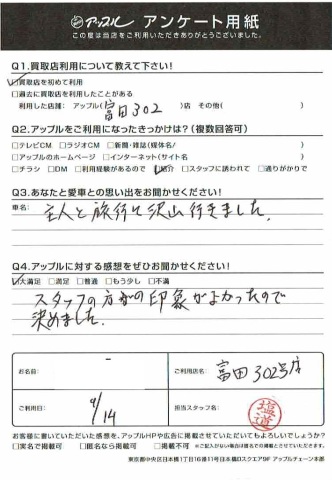 アップル アンケート用紙
この度は当店をご利用いただきありがとうございました。
Q1.買取店利用について教えて下さい!
□買取店を初めて利用
□過去に買取店を利用したことがある
利用した店舗: アップル( 富田302 )店 その他( )
Q2.アップルをご利用になったきっかけは?(複数回答可)
□テレビCM □ラジオCM □新聞・雑誌(媒体名/ )
□アップルのホームページ □インターネット(サイト名 )
□チラシ □DM □利用経験があるので □紹介 □スタッフに誘われて □通りがかりで
Q3.あなたと愛車との思い出をお聞かせください!
車名:
主人と旅行に沢山行きました。
Q4.アップルに対する感想をぜひお聞かせください!
□大満足 □満足 □普通 □もう少し □不満
スタッフの方がの印象がよかったので
決めました.
お名前: ご利用店名: 富田302号店
ご利用日: 9/14 担当スタッフ名:
お客様に書いていただいた感想を、アップルHPや広告に掲載させていただいてもよろしいでしょうか?
□実名で掲載可 □匿名なら掲載可 □掲載不可 ※ご記入がない場合は匿名での掲載とさせていただきます。
東京都中央区日本橋1丁目16番11号日本橋Dスクエア9F アップルチェーン本部